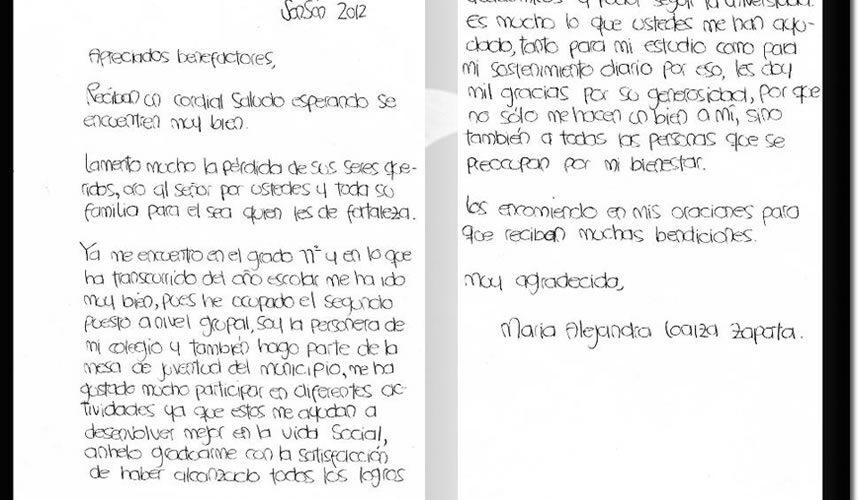 Sonsón 2012
Apreciados benefactores,
Reciban un cordial saludo esperando se
encuentren muy bien.
Lamento mucho la pérdida de sus seres que-
ridos, oro al señor por ustedes y toda su
familia para el sea quien les de fortaleza.
Ya me encuentro en el grado 11º y en lo que
ha transcurrido del año escolar me ha ido
muy bien, pues he ocupado el segundo
puesto a nivel grupal, soy la personera de
mi colegio y también hago parte de la
mesa de juventud del municipio, me ha
gustado mucho participar en diferentes ac-
tividades ya que estos me ayudan a
desenvolver mejor en la vida social,
anhelo graduarme con la satisfacción
de haber alcanzado todos los logros
según la universidad.
Es mucho lo que ustedes me han ayu-
dado, tanto para mi estudio como para
mi sostenimiento diario por eso, les doy
mil gracias por su generosidad, porque
no sólo me hacen un bien a mí, sino
también a todas las personas que se
preocupan por mi bienestar.
Los encomiendo en mis oraciones para
que reciban muchas bendiciones.
Muy agradecida,
Maria Alejandra Loaiza Zapata.